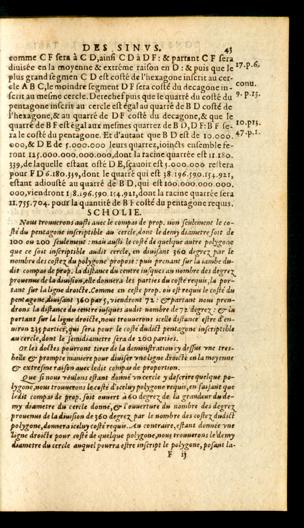 DES SINVS. 43
comme C F sera à C D, ainsi C D à D F: & partant C F sera
diuisee en la moyenne & extrême raison en D: & puis que le 27.p.6.
plus grand segmen C D est costé de l'hexagone inscrit au cer-
cle A B C, le moindre segment D F sera costé du decagone in- conu.
scrit au mesme cercle. Derechef puis que le quarré du costé du 9. p.13.
pentagone inscrit au cercle est égal au quarré de B D costé de
l'hexagone, & au quarré de D F costé du decagone, & que le
quarré de B F est égal aux mesmes quarrez de B D, D F: B F se- 10.p13.
ra le costé du pentagone. Et d'autant que B D est de 10.000. 47.p.1.
000, & D E de 5.000.000 leurs quarrez, ioincts ensemble fe-
ront 125.000.000.000.000, dont la racine quarrée est 11.180.
339, de laquelle estant osté D E, sçauoit est 5.000.000 restera
pour F D 6.180.339, dont le quarré qui est 38.196.590.154.921,
estant adiousté au quarré de B D, qui est 100.000.000.000.
000, viendront 138.196.590.154.921, dont la racine quarrée sera
11.755.704. pour la quantité de B F costé du pentagone requis.
SCHOLIE.
Nous trouuerons aussi auec le compas de prop. non seulement le co-
sté du pentagone inscriptible au cercle, dont le demy diametre soit de
100 ou 200 seulement: mais aussi le costé de quelque autre polygone
que ce soit inscriptible audit cercle, en diuisant 360 degrez par le
nombre des costez du polygone proposé: puis prenant sur la iambe du-
dit compas de prop. la distance du centre iusques au nombre des degrez
prouenus de la diuision, elle donnera les parties du costé requis, la por-
tant sur la ligne droicte. Comme en ceste prop. où est requis le costé du
pentagone, diuisant 360 par 5, viendront 72: & partant nous pren-
drons la distance du centre iusques audit nombre de 72 degrez: & la
portant sur la ligne droicte, nous trouuerons icelle distance estre d'en-
uiron 235 parties, qui sera pour le costé dudict pentagone inscriptible
au cercle, dont le semidiametre sera de 200 parties.
Or les doctes pourront tirer de la demonstration cy dessus vne tres-
belle & prompte maniere pour diuiser vne ligne droicte en la moyenne
& extresme raison auec ledit compas de proportion.
Que si nous voulons estant donné vn cercle y descrire quelque po-
lygone, nous trouuerons le costé d'iceluy polygone requis, en faisant que
ledit compas de prop. soit ouuert à 60 degrez de la grandeur du de-
my diametre du cercle donné, & l'ouuerture du nombre des degrez
prouenus de la diuision de 360 degrez par le nombre des costez dudict
polygone, donnera iceluy costé requis. Au contraire, estant donnée vne
ligne droicte pour costé de quelque polygone, nous trouuerons le demy
diametre du cercle auquel pourra estre inscript le polygone, posant la-
F ij